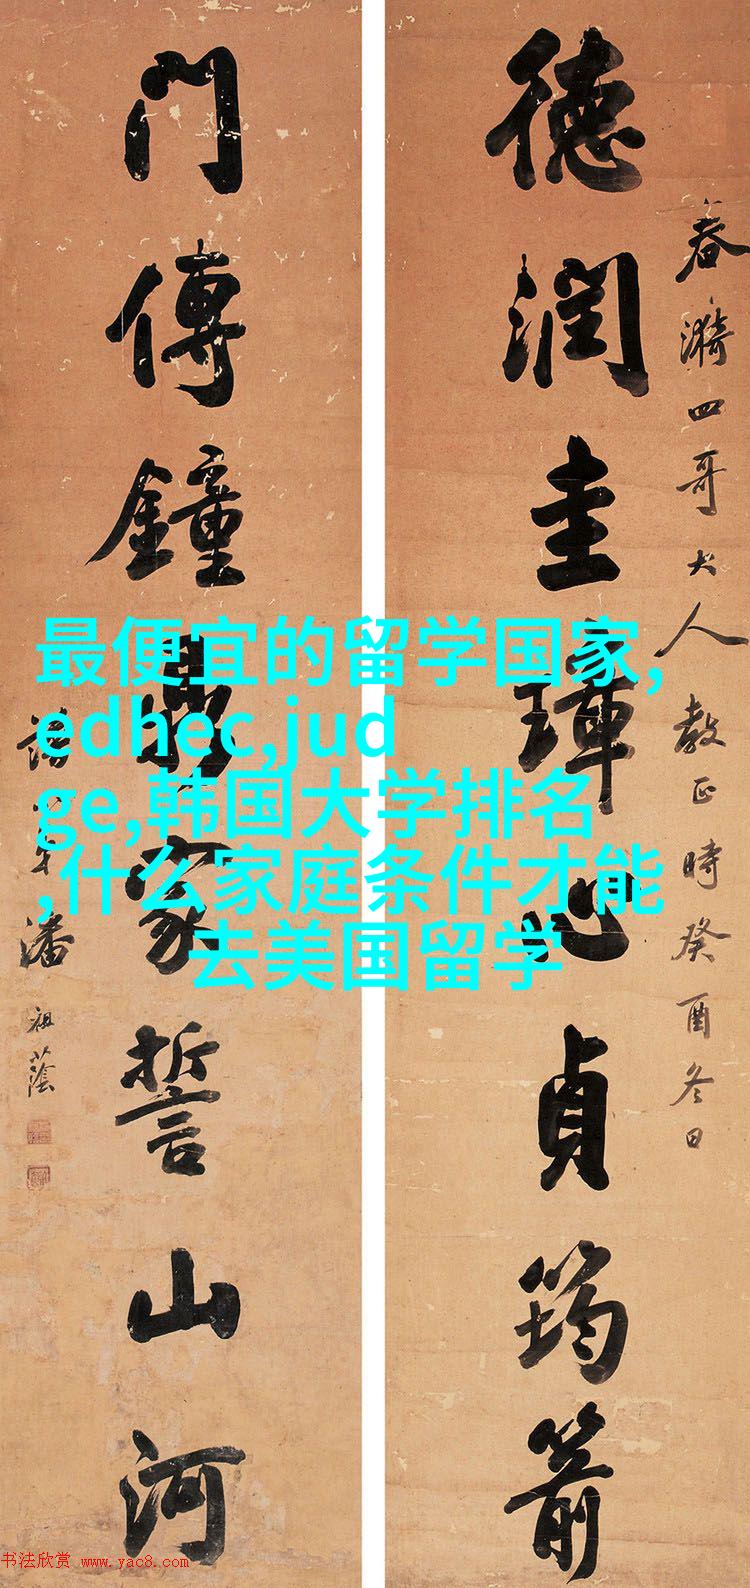 德潤圭璋心貞筠箭
春漪四哥大人教正時癸酉冬日
門傳鐘鼎家誓山河
潘祖蔭
最便宜的留学国家,
edhec,jud
ge,韩国大学排名
,什么家庭条件才能
去美国留学
书法欣赏 www.yac8.com